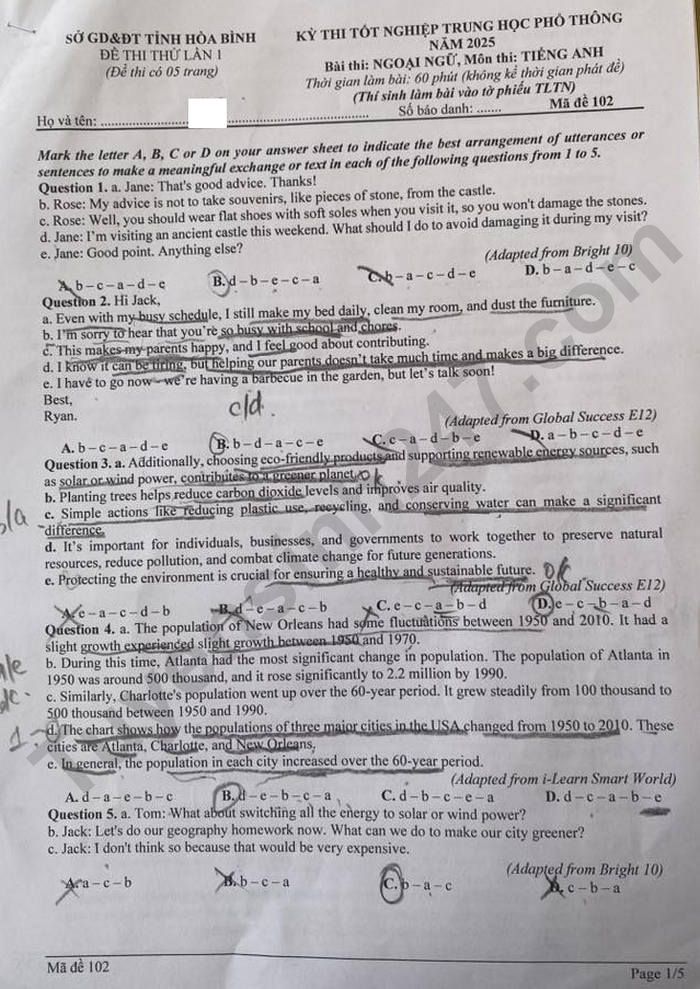 SỞ GD&ĐT TỈNH HÒA BÌNH
ĐỀ THI THỬ LẦN 1
(Đề thi có 05 trang)
KỲ THI TỐT NGHIỆP TRUNG HỌC PHỔ THÔNG
NĂM 2025
Bài thi: NGOẠI NGỮ, Môn thi: TIẾNG ANH
Thời gian làm bài: 60 phút (không kể thời gian phát đề)
(Thí sinh làm bài vào tờ phiếu TLTN)
Họ và tên: ........................................................................ Số báo danh: ....... Mã đề 102
Mark the letter A, B, C or D on your answer sheet to indicate the best arrangement of utterances or
sentences to make a meaningful exchange or text in each of the following questions from 1 to 5.
Question 1. a. Jane: That's good advice. Thanks!
b. Rose: My advice is not to take souvenirs, like pieces of stone, from the castle.
c. Rose: Well, you should wear flat shoes with soft soles when you visit it, so you won't damage the stones.
d. Jane: I'm visiting an ancient castle this weekend. What should I do to avoid damaging it during my visit?
e. Jane: Good point. Anything else?
(Adapted from Bright 10)
A. b – c – a – d – e B. d – b – e – c – a C. b – a – c – d – e D. b – a – d – e – c
Question 2. Hi Jack,
a. Even with my busy schedule, I still make my bed daily, clean my room, and dust the furniture.
b. I'm sorry to hear that you're so busy with school and chores.
c. This makes my parents happy, and I feel good about contributing.
d. I know it can be tiring, but helping our parents doesn't take much time and makes a big difference.
e. I have to go now – we're having a barbecue in the garden, but let's talk soon!
Best,
Ryan.
c/d.
(Adapted from Global Success E12)
A. b – c – a – d – e B. b – d – a – c – e C. c – a – d – b – e D. a – b – c – d – e
Question 3. a. Additionally, choosing eco-friendly products and supporting renewable energy sources, such
as solar or wind power, contributes to a greener planet. ok
b. Planting trees helps reduce carbon dioxide levels and improves air quality.
c. Simple actions like reducing plastic use, recycling, and conserving water can make a significant
difference.
d. It's important for individuals, businesses, and governments to work together to preserve natural
resources, reduce pollution, and combat climate change for future generations.
e. Protecting the environment is crucial for ensuring a healthy and sustainable future. ok
(Adapted from Global Success E12)
A. e – a – c – d – b B. d – e – a – c – b C. e – c – a – b – d D. e – c – b – a – d
Question 4. a. The population of New Orleans had some fluctuations between 1950 and 2010. It had a
slight growth experienced slight growth between 1950 and 1970.
b. During this time, Atlanta had the most significant change in population. The population of Atlanta in
1950 was around 500 thousand, and it rose significantly to 2.2 million by 1990.
c. Similarly, Charlotte's population went up over the 60-year period. It grew steadily from 100 thousand to
500 thousand between 1950 and 1990.
d. The chart shows how the populations of three major cities in the USA changed from 1950 to 2010. These
cities are Atlanta, Charlotte, and New Orleans.
e. In general, the population in each city increased over the 60-year period.
(Adapted from i-Learn Smart World)
A. d – a – e – b – c B. d – e – b – c – a C. d – b – c – e – a D. d – c – a – b – e
Question 5. a. Tom: What about switching all the energy to solar or wind power?
b. Jack: Let's do our geography homework now. What can we do to make our city greener?
c. Jack: I don't think so because that would be very expensive.
(Adapted from Bright 10)
A. a – c – b B. b – c – a C. b – a – c D. c – b – a
Mã đề 102
Page 1/5